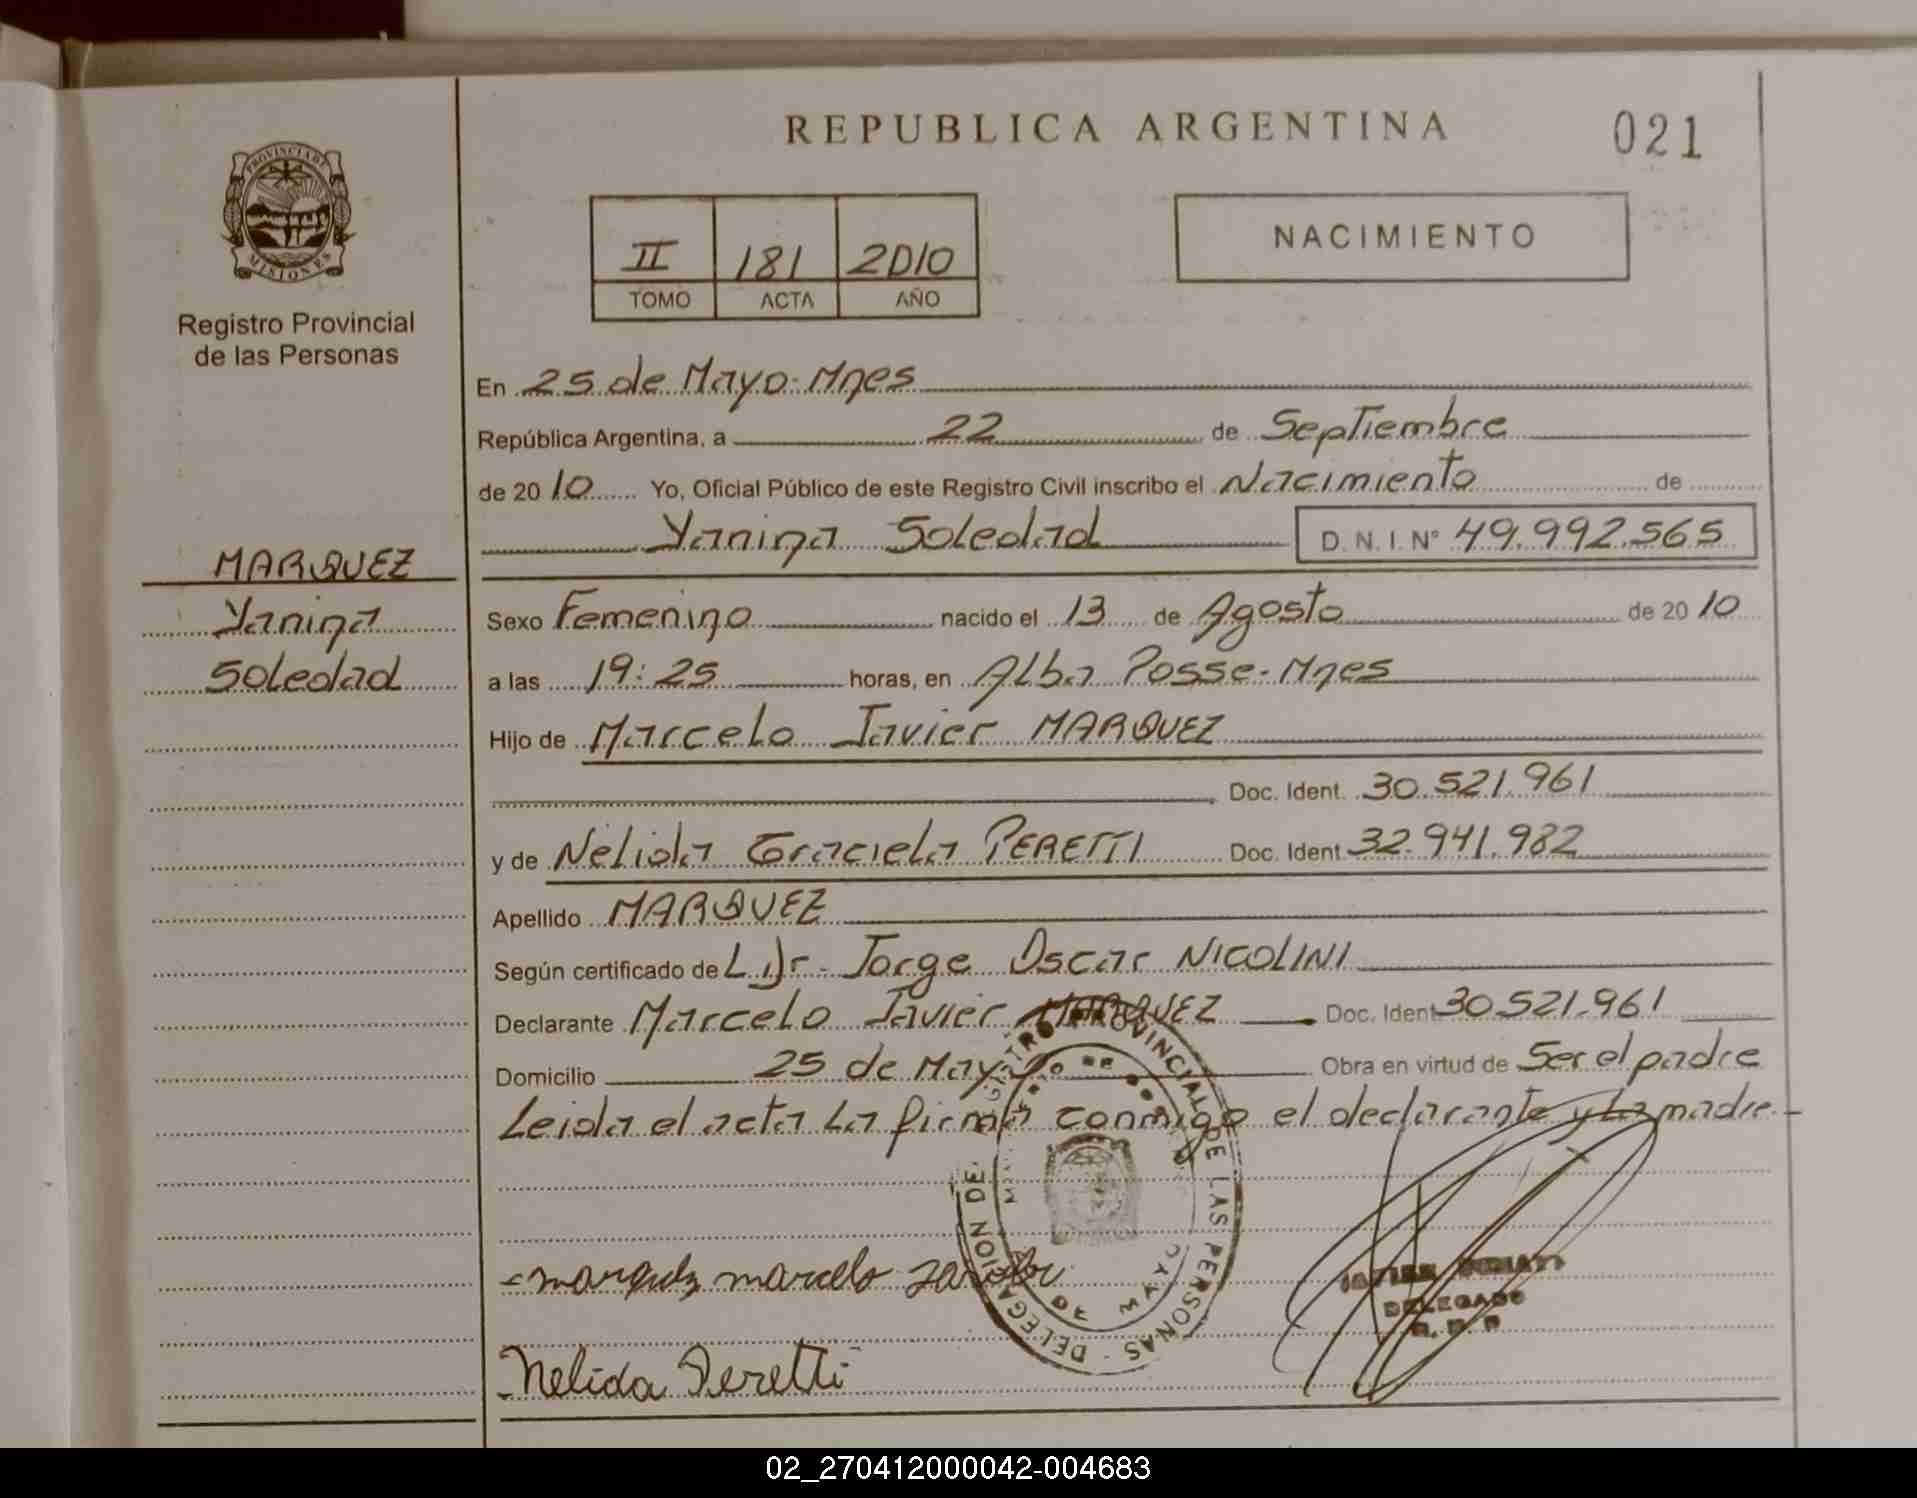 REPUBLICA ARGENTINA
021
PROVINCIA DE
MISIONES
Registro Provincial
de las Personas
II 181 2010
TOMO ACTA AÑO
NACIMIENTO
En 25 de Mayo-Mnes
República Argentina, a 22 de Septiembre
de 2010 Yo, Oficial Público de este Registro Civil inscribo el Nacimiento de
Yanina Soledad D.N.I.Nº 49.992.565
MARQUEZ
Yanina
Soledad
Sexo Femenino nacido el 13 de Agosto de 2010
a las 19:25 horas, en Alba Posse-Mnes
Hijo de Marcelo Javier MARQUEZ
Doc. Ident. 30.521.961
y de Nelida Graciela PERETTI Doc. Ident 32.941.982
Apellido MARQUEZ
Según certificado de Jorge Oscar NICOLINI
Declarante Marcelo Javier MARQUEZ Doc. Ident 30.521.961
Domicilio 25 de Mayo Obra en virtud de Ser el padre
Leida el acta La firma conmigo el declarante y La madre.-
PROVINCIAL DE LAS PERSONAS - DELEGACION DE
DE MAYO
marquez marcelo Javier
DELEGADO
Nelida Peretti
02_270412000042-004683